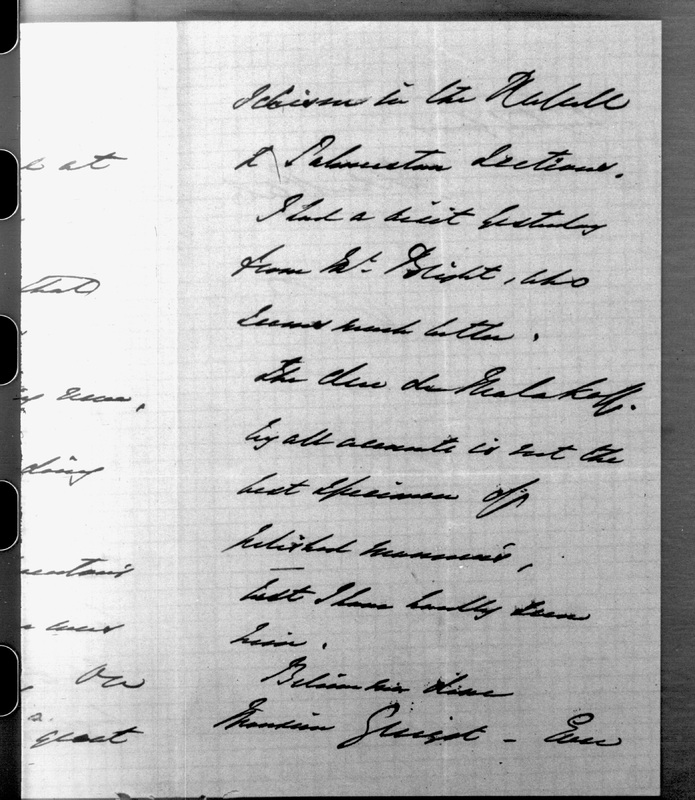 at
that
doing
was
On
great
Schism in the Russell
& Palmerston Sections.
I had a visit yesterday
from Mr. Bright, who
seems much better.
The Duc de Malakoff.
by all accounts is not the
best specimen of
polished manners,
but I have hardly seen
him.
Believe me dear
Monsieur Guizot – Ever